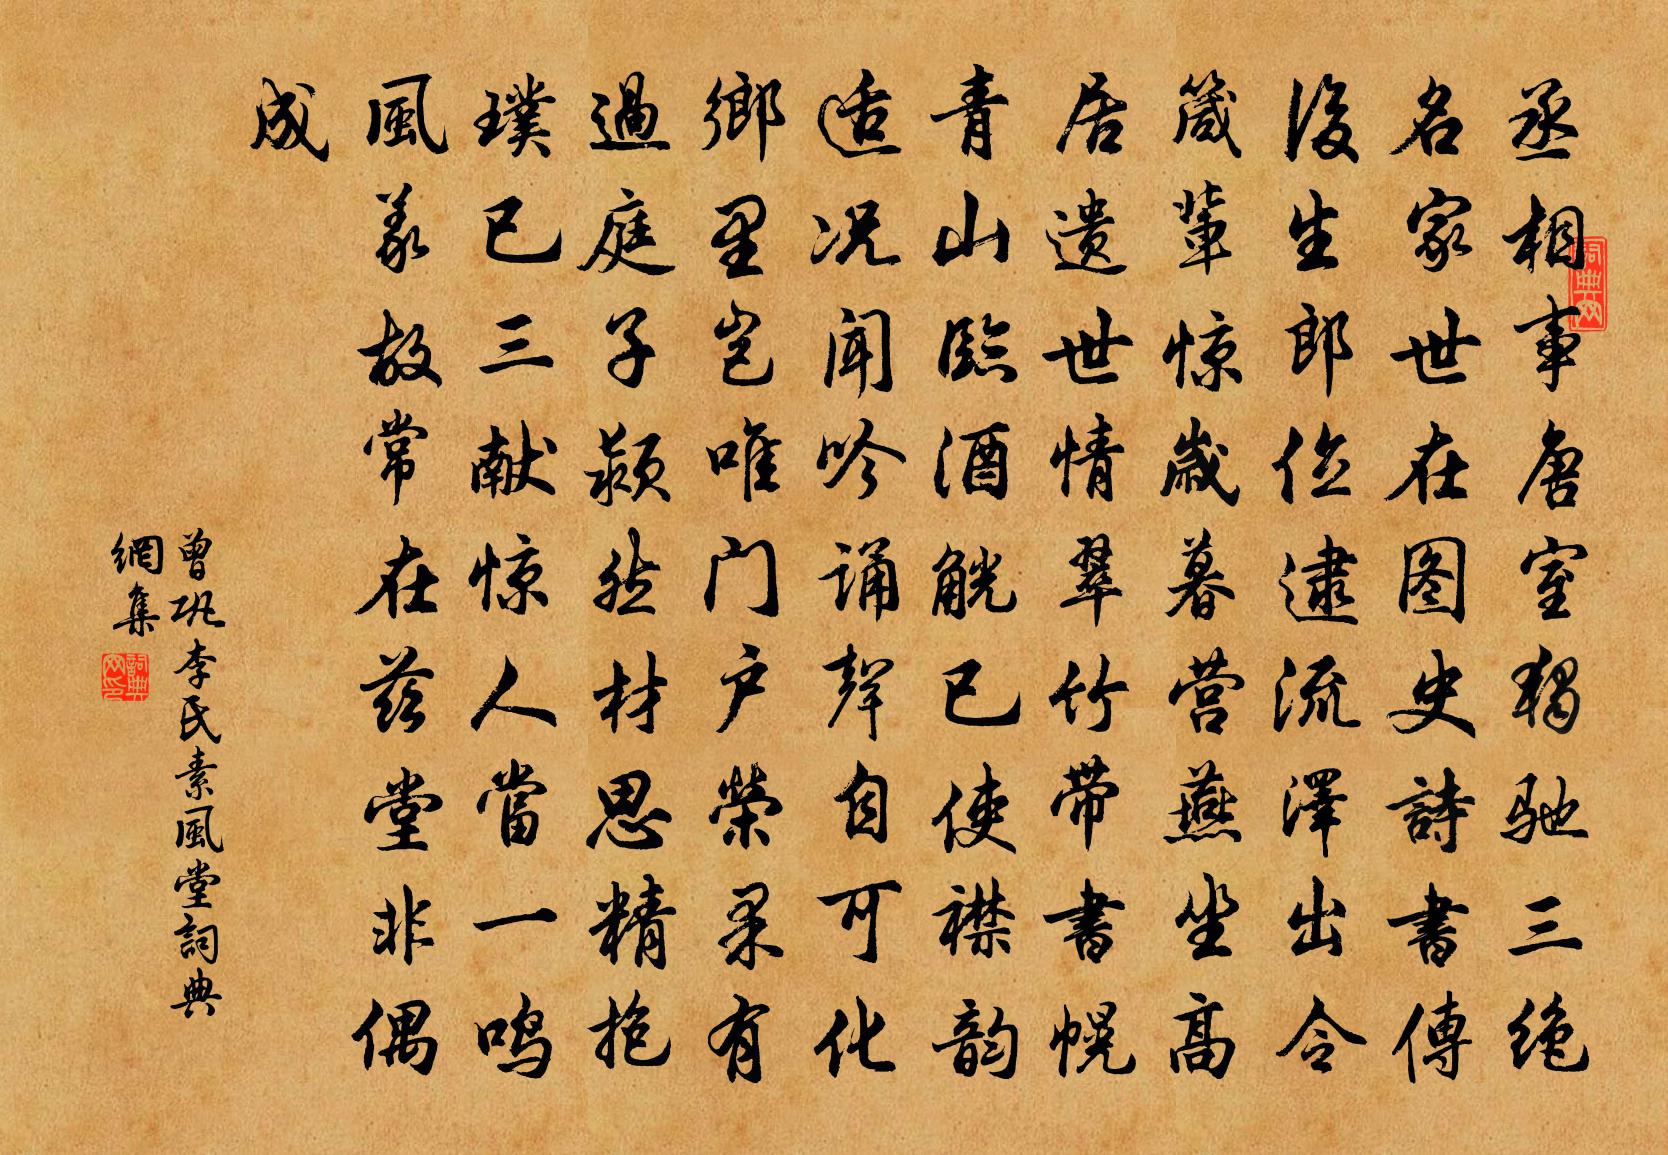 丞相事唐室獨驰三绝
名家世在图史詩書傳
後生郎位逮流澤出令
箴輩惊歲暮营燕坐高
居遗世情翠竹带書幌
青山臨酒觥已使襟韵
适况闻吟诵聲自可化
鄉里岂唯门户榮果有
過庭子颖然材思精抱
璞已三献惊人當一鸣
風義故常在兹堂非偶
成
曾巩李氏素風堂詞典
網集
詞典网
詞典网印